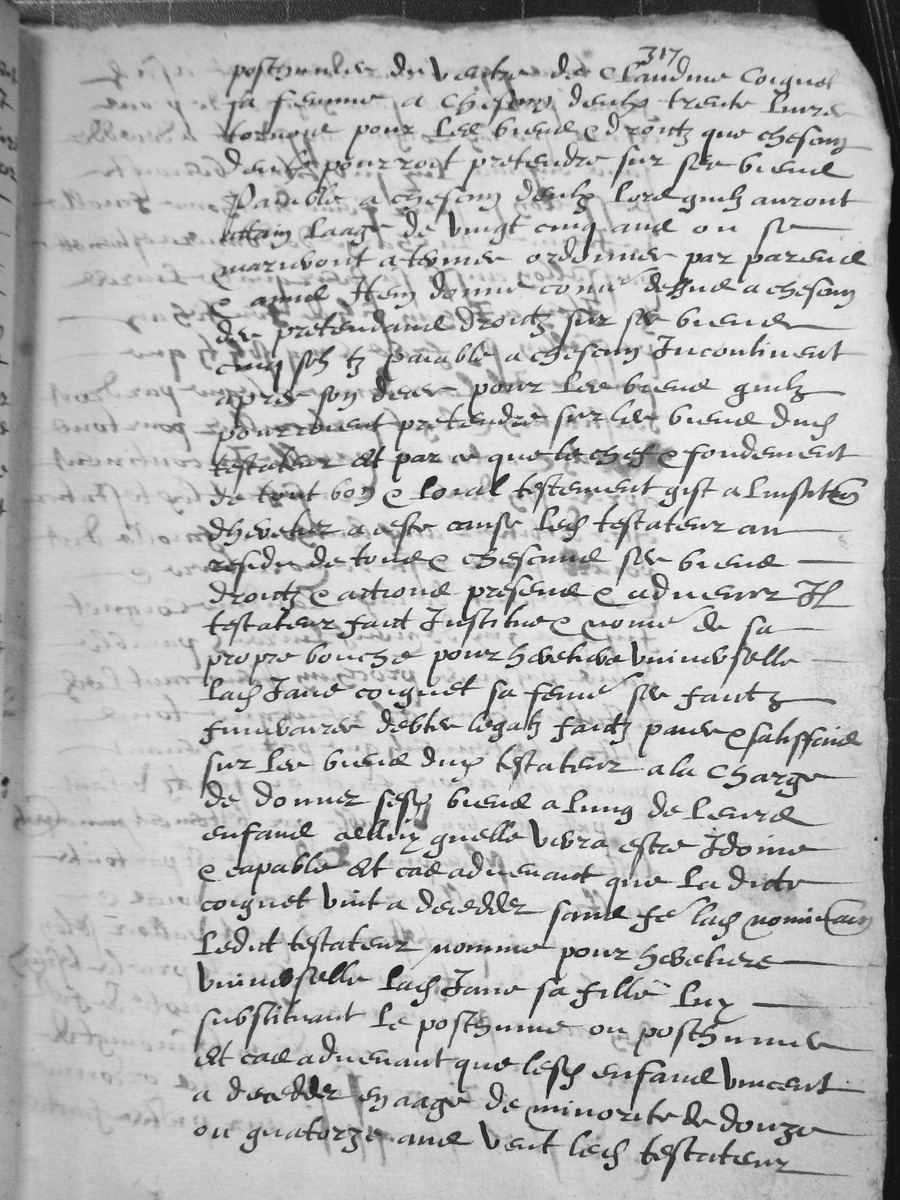 317
posthumes du ventre de Claudine Coignet
sa femme a chescung deulx trente livres
tornois pour les biens & droitz que chescung
deulx pourroit pretendre sur ses biens
Paiable a chescung deulx lors quilz auront
attain laage de vingt cinq ans ou se
mariront a termes ordonnes par parens
& amis Item donne come dessus a chescung
des pretendans droitz sur ses biens
cinq solz tz paiable a chescung Incontinent
apres son deces pour les biens quilz
pourroient pretendre sur les biens dud
testateur Et par ce que le chef & fondement
de tout bon & loial testement gist a linstiton
dheretier a ceste cause led testateur au
residu de tous & chescuns ses biens
droitz & actions presens & advenir Il
testateur faict Institue & nome de sa
propre bouche pour heretiere universelle
lad Jane coignet sa feme ses faictz
funeraires debtes legatz faictz paies & satisffaictz
sur les biens dud testateur a la charge
de donner sesd biens a lung de leurs
enfans celluy quelle verra estre Idoine
& capable Et cas advenant que la dicte
coignet vint a deceder sans fe lad nominaon
ledict testateur nomme pour heretiere
universelle lad Jane sa fille luy
substituant le posthume ou posthumes
Et cas advenant que lesd enfans vincent
a deceder en aage de minorite de douze
ou quatorze ans veut led testateur